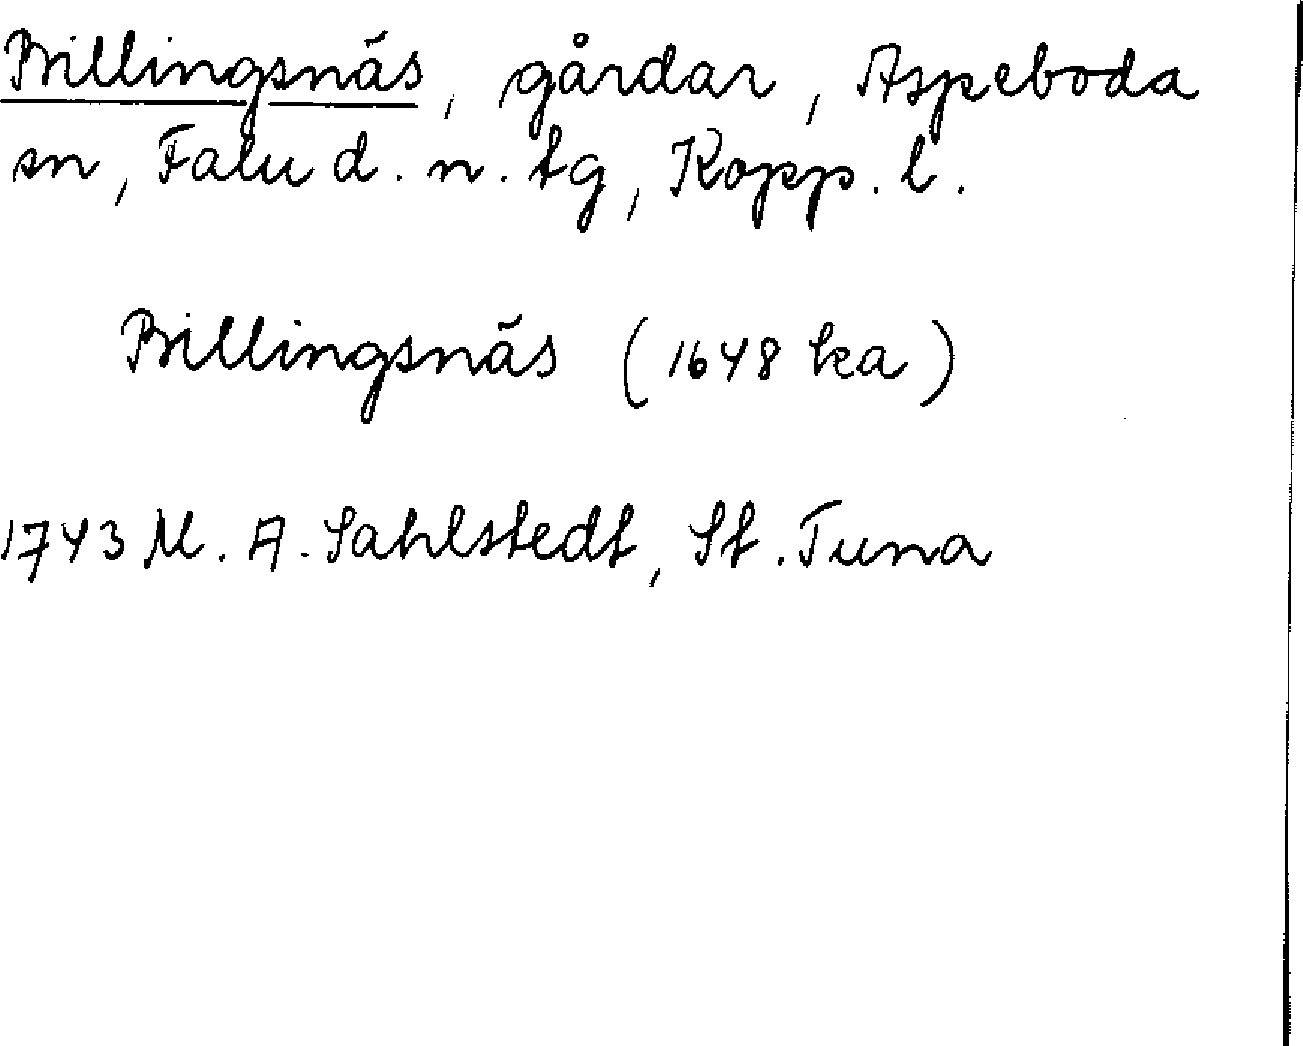 Billingsnäs, gårdar, Aspeboda
sn, Falu d. n. tg, Kopp. l.
Billingsnäs (1648 ka)
1743 M. A. Sahlstedt, St. Tuna